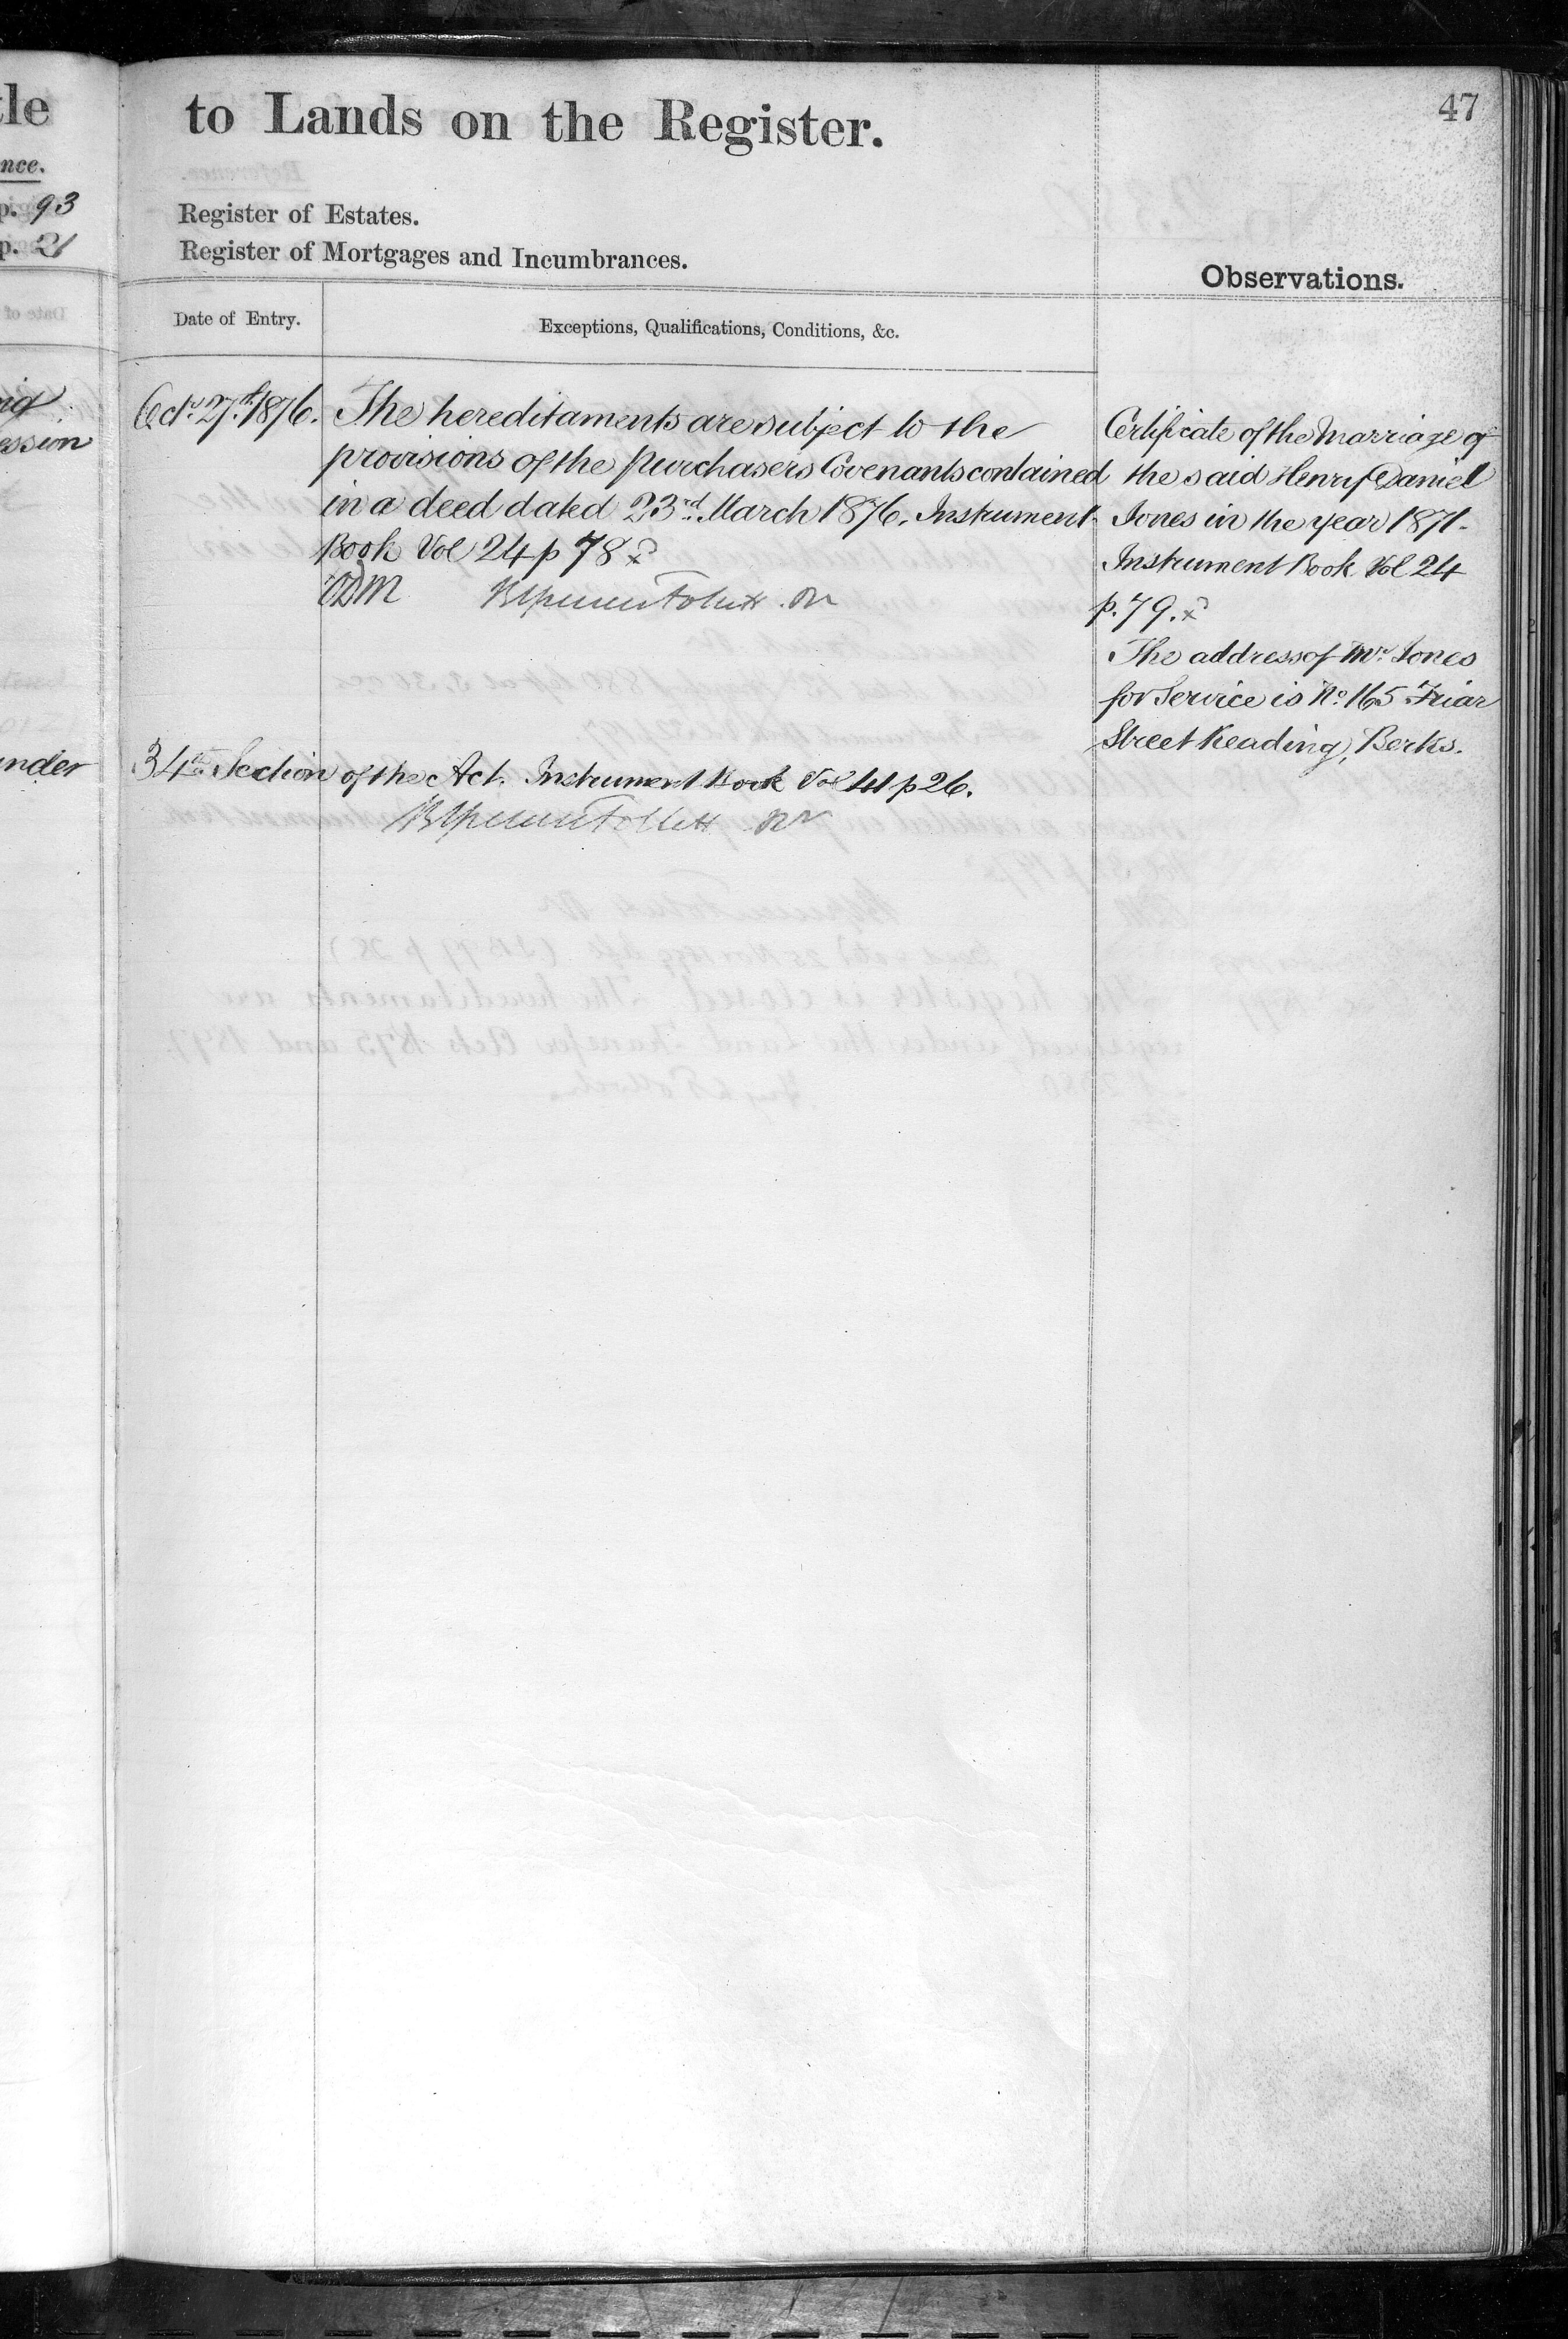 tle
nce.
p. 93
p. 21
ession
under
to Lands on the Register.
47
Register of Estates.
Register of Mortgages and Incumbrances.
Observations.
Date of Entry.
Exceptions, Qualifications, Conditions, &c.
Octr. 27th. 1876.
The hereditaments are subject to the
provisions of the purchasers Covenants contained
in a deed dated 23rd. March 1876. Instrument
Book Vol 24 p 78
Follett
34th. Section of the Act. Instrument Book Vol 41 p 26.
Follett
Certificate of the Marriage of
the said Henry Daniel
Jones in the year 1871.
Instrument Book Vol 24
p. 79.
The address of Mr. Jones
for Service is No. 165 Friar
Street Reading, Berks.